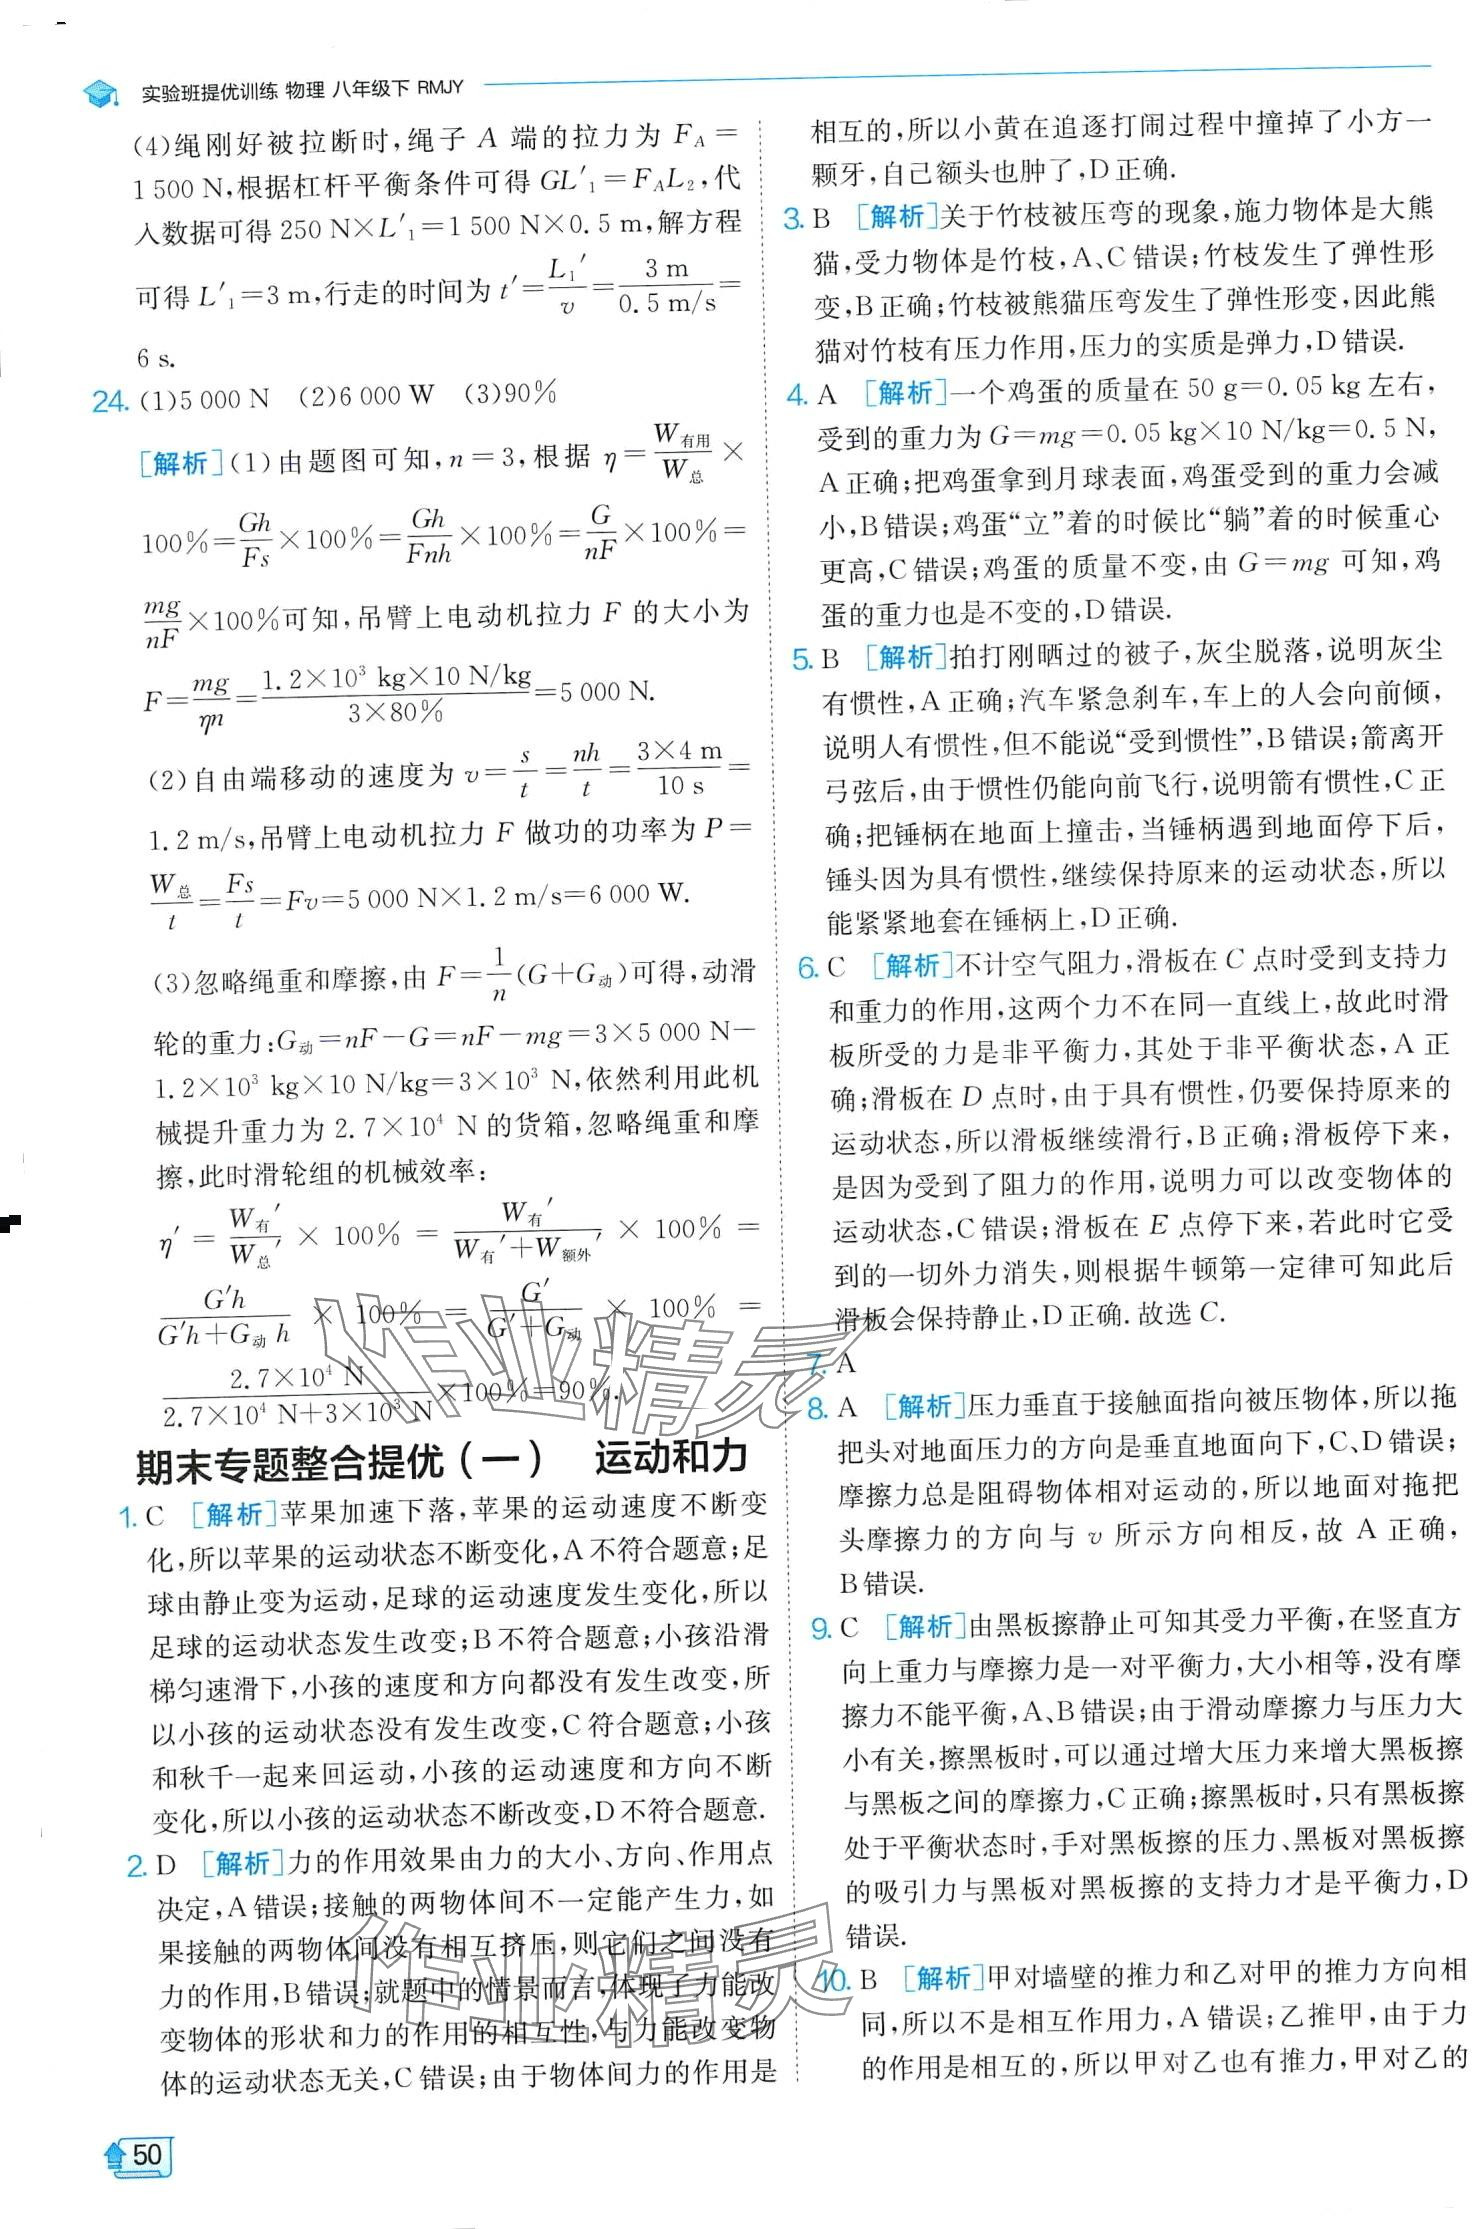 实验班提优训练 物理 八年级下 RMJY
(4)绳刚好被拉断时,绳子 A 端的拉力为 F_A=
1 500 N,根据杠杆平衡条件可得 GL′₁=F_AL₂,代
入数据可得 250 N×L′₁=1 500 N×0.5 m,解方程
可得 L′₁=3 m,行走的时间为 t′=L₁′/v=3 m/0.5 m/s=
6 s.
24. (1)5 000 N (2)6 000 W (3)90%
[解析](1)由题图可知,n=3,根据 η=W有用/W总×
100%=Gh/Fs×100%=Gh/Fnh×100%=G/nF×100%=
mg/nF×100%可知,吊臂上电动机拉力 F 的大小为
F=mg/ηn=1.2×10³ kg×10 N/kg/3×80%=5 000 N.
(2)自由端移动的速度为 v=s/t=nh/t=3×4 m/10 s=
1.2 m/s,吊臂上电动机拉力 F 做功的功率为 P=
W总/t=Fs/t=Fv=5 000 N×1.2 m/s=6 000 W.
(3)忽略绳重和摩擦,由 F=1/n(G+G动)可得,动滑
轮的重力:G动=nF-G=nF-mg=3×5 000 N-
1.2×10³ kg×10 N/kg=3×10³ N,依然利用此机
械提升重力为 2.7×10⁴ N的货箱,忽略绳重和摩
擦,此时滑轮组的机械效率:
η′=W有′/W总′×100%=W有′/W有′+W额外′×100%=
G′h/G′h+G动 h×100%=G′/G′+G动×100%=
2.7×10⁴ N/2.7×10⁴ N+3×10³ N×100%=90%.
期末专题整合提优(一) 运动和力
1. C [解析]苹果加速下落,苹果的运动速度不断变
化,所以苹果的运动状态不断变化,A不符合题意;足
球由静止变为运动,足球的运动速度发生变化,所以
足球的运动状态发生改变;B不符合题意;小孩沿滑
梯匀速滑下,小孩的速度和方向都没有发生改变,所
以小孩的运动状态没有发生改变,C符合题意;小孩
和秋千一起来回运动,小孩的运动速度和方向不断
变化,所以小孩的运动状态不断改变,D不符合题意.
2. D [解析]力的作用效果由力的大小、方向、作用点
决定,A错误;接触的两物体间不一定能产生力,如
果接触的两物体间没有相互挤压,则它们之间没有
力的作用,B错误;就题中的情景而言,体现了力能改
变物体的形状和力的作用的相互性,与力能改变物
体的运动状态无关,C错误;由于物体间力的作用是
相互的,所以小黄在追逐打闹过程中撞掉了小方一
颗牙,自己额头也肿了,D正确.
3. B [解析]关于竹枝被压弯的现象,施力物体是大熊
猫,受力物体是竹枝,A、C错误;竹枝发生了弹性形
变,B正确;竹枝被熊猫压弯发生了弹性形变,因此熊
猫对竹枝有压力作用,压力的实质是弹力,D错误.
4. A [解析]一个鸡蛋的质量在 50 g=0.05 kg左右,
受到的重力为G=mg=0.05 kg×10 N/kg=0.5 N,
A正确;把鸡蛋拿到月球表面,鸡蛋受到的重力会减
小,B错误;鸡蛋“立”着的时候比“躺”着的时候重心
更高,C错误;鸡蛋的质量不变,由 G=mg 可知,鸡
蛋的重力也是不变的,D错误.
5. B [解析]拍打刚晒过的被子,灰尘脱落,说明灰尘
有惯性,A正确;汽车紧急刹车,车上的人会向前倾,
说明人有惯性,但不能说“受到惯性”,B错误;箭离开
弓弦后,由于惯性仍能向前飞行,说明箭有惯性,C正
确;把锤柄在地面上撞击,当锤柄遇到地面停下后,
锤头因为具有惯性,继续保持原来的运动状态,所以
能紧紧地套在锤柄上,D正确.
6. C [解析]不计空气阻力,滑板在C点时受到支持力
和重力的作用,这两个力不在同一直线上,故此时滑
板所受的力是非平衡力,其处于非平衡状态,A正
确;滑板在D点时,由于具有惯性,仍要保持原来的
运动状态,所以滑板继续滑行,B正确;滑板停下来,
是因为受到了阻力的作用,说明力可以改变物体的
运动状态,C错误;滑板在 E 点停下来,若此时它受
到的一切外力消失,则根据牛顿第一定律可知此后
滑板会保持静止,D正确.故选C.
7. A
8. A [解析]压力垂直于接触面指向被压物体,所以拖
把头对地面压力的方向是垂直地面向下,C、D错误;
摩擦力总是阻碍物体相对运动的,所以地面对拖把
头摩擦力的方向与 v 所示方向相反,故 A 正确,
B错误.
9. C [解析]由黑板擦静止可知其受力平衡,在竖直方
向上重力与摩擦力是一对平衡力,大小相等,没有摩
擦力不能平衡,A、B错误;由于滑动摩擦力与压力大
小有关,擦黑板时,可以通过增大压力来增大黑板擦
与黑板之间的摩擦力,C正确;擦黑板时,只有黑板擦
处于平衡状态时,手对黑板擦的压力、黑板对黑板擦
的吸引力与黑板对黑板擦的支持力才是平衡力,D
错误.
10. B [解析]甲对墙壁的推力和乙对甲的推力方向相
同,所以不是相互作用力,A错误;乙推甲,由于力
的作用是相互的,所以甲对乙也有推力,甲对乙的
50
作业精灵
作业精灵